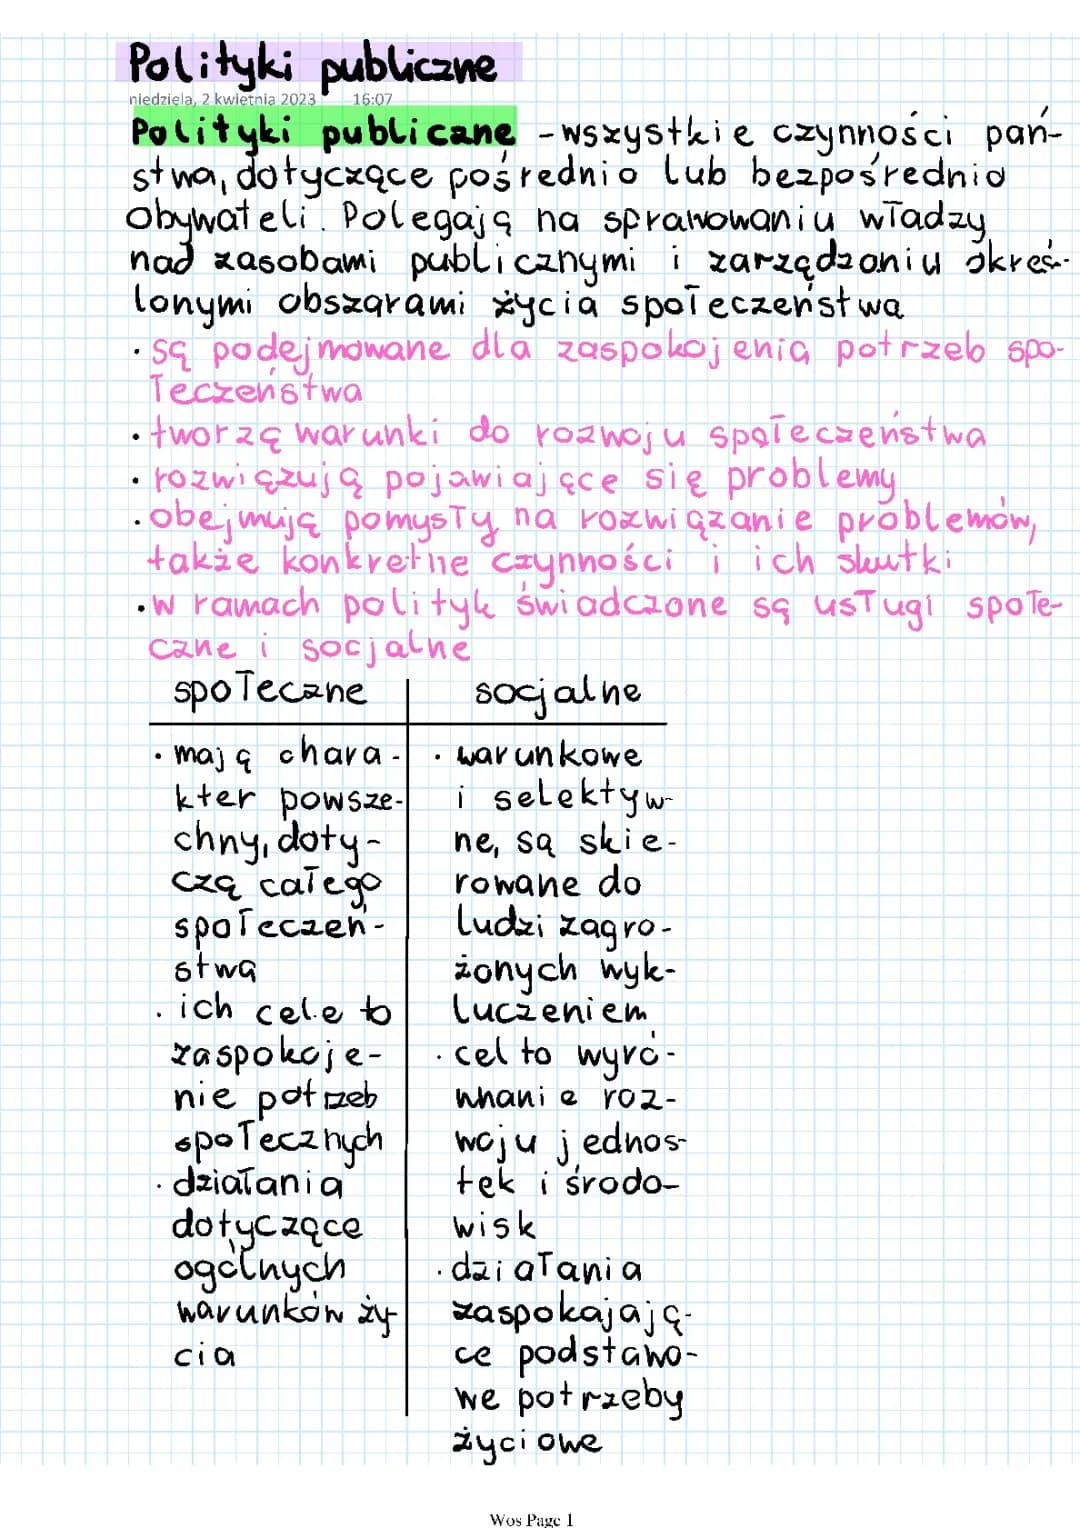 Polityki publiczne
niedziela, 2 kwietnia 2023 16:07
Polityki publiczne - wszystkie czynności pań-
stwa, dotyczące pośrednio lub bezpośrednio
obywateli. Polegają na sprawowaniu władzy
nad zasobami publicznymi i zarządzaniu okreś-
lonymi obszarami życia społeczeństwa
· są podejmowane dla zaspokojenia potrzeb spo-
łeczeństwa
· tworzą warunki do rozwoju społeczeństwa
· rozwiązują pojawiające się problemy
· obejmują pomysły na rozwiązanie problemów,
także konkretne czynności i ich skutki
· w ramach polityk świadczone są usługi społe-
czne i socjalne
społeczne
· mają chara-
kter powsze-
chny, doty-
czą całego
społeczeń-
stwa
· ich cele to
zaspokoje-
nie potrzeb
społecznych
· działania
dotyczące
ogólnych
warunków ży
cia
socjalne
· warunkowe
i selektyw-
ne, są skie-
rowane do
ludzi zagro-
żonych wyk-
luczeniem
· cel to wyró-
wnanie roz-
woju jednos-
tek i środo-
wisk
· działania
zaspokajają-
ce podstawo-
we potrzeby
życiowe
Wos Page 1